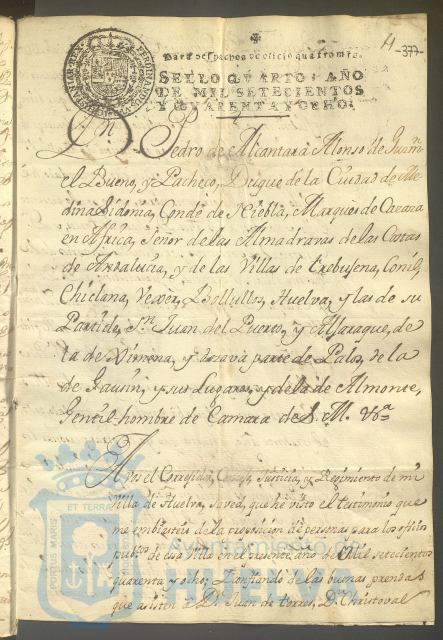 H -377-
Para despachos de oficio quatro mrs.
SELLO QVARTO, AÑO
DE MIL SETECIENTOS
Y QVARENTA Y OCHO.
Dn Pedro de Alcantara Alonso de Guzmn
el Bueno, y Pacheco, Duque de la Ciudad de Me
dina Sidonia, Conde de Niebla, Marques de Cazaza
en Africa, Señor de las Almadravas de las Costas
de Andalucia, y de las Villas de Trebujena, Conil,
Chiclana, Vexer, Bollullos, Huelva, y las de su
Partido, Sn Juan del Puerto, y Alfaraque, de
la de Ximena, y octava parte de Palos, de la
de Gausin, y sus Lugares, y de la de Almonte,
Gentil-hombre de Camara de S. M. &a
A vos el Corregidor, Concejo, Justicia, y Regimiento de mi
villa de Huelva, saved, que he visto el testimonio que
me embiasteis de la proposicion de personas para los oficios
publicos de esa villa en el presente año de Mil setecientos
quarenta y ocho; Y confiando de las buenas prendas
que asisten à Dn Juan de torres, Dn Christoval
ET TERRÆ
PORTUS MARIS
Ayuntamiento de
HUELVA